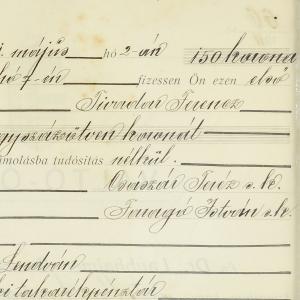 május hó 2-án 150 korona
hó 7-én fizessen Ön ezen első
Tivadar Ferencz
gyszázötven koronát
ámolásba tudósítás nélkül.
Császár Teréz s. k.
Faragó István s. k.
Lendván
takarékpénztár